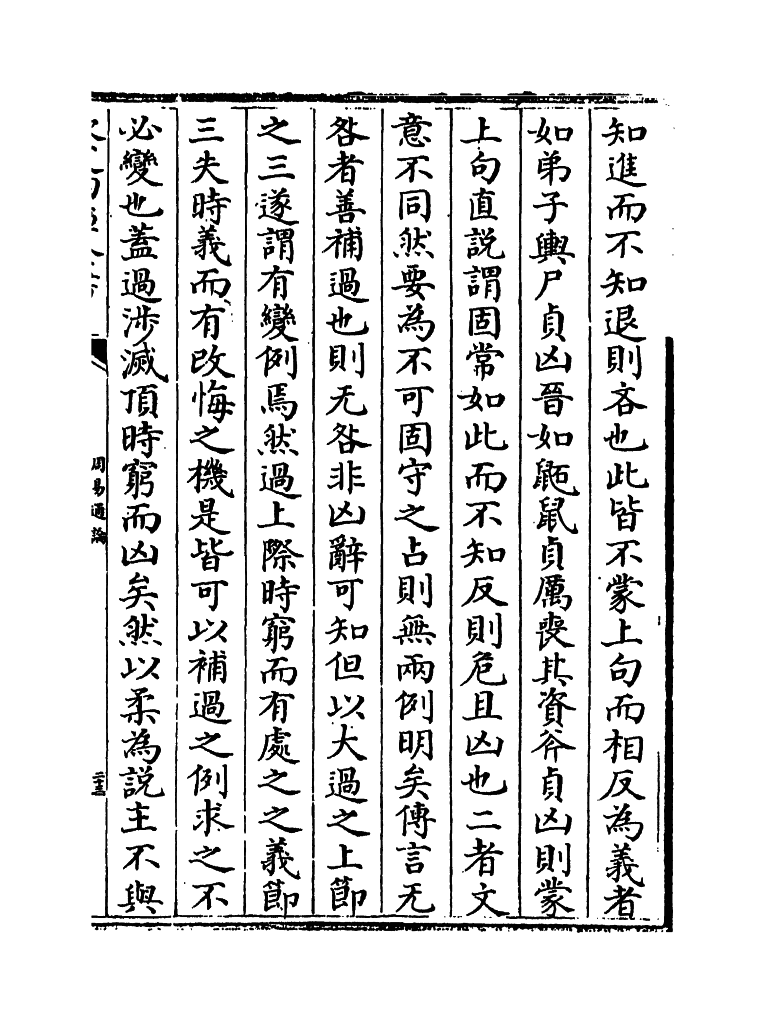 知進而不知退則吝也此皆不蒙上句而相反為義者
如弟子輿尸貞凶晉如鼫鼠貞厲喪其資斧貞凶則蒙
上句直說謂固常如此而不知反則危且凶也二者文
意不同然要為不可固守之占則無兩例明矣傳言无
咎者善補過也則无咎非凶辭可知但以大過之上節
之三遂謂有變例焉然過上際時窮而有處之之義節
三失時義而有改悔之機是皆可以補過之例求之不
必變也蓋過涉滅頂時窮而凶矣然以柔為說主不與
周易通論
二十三